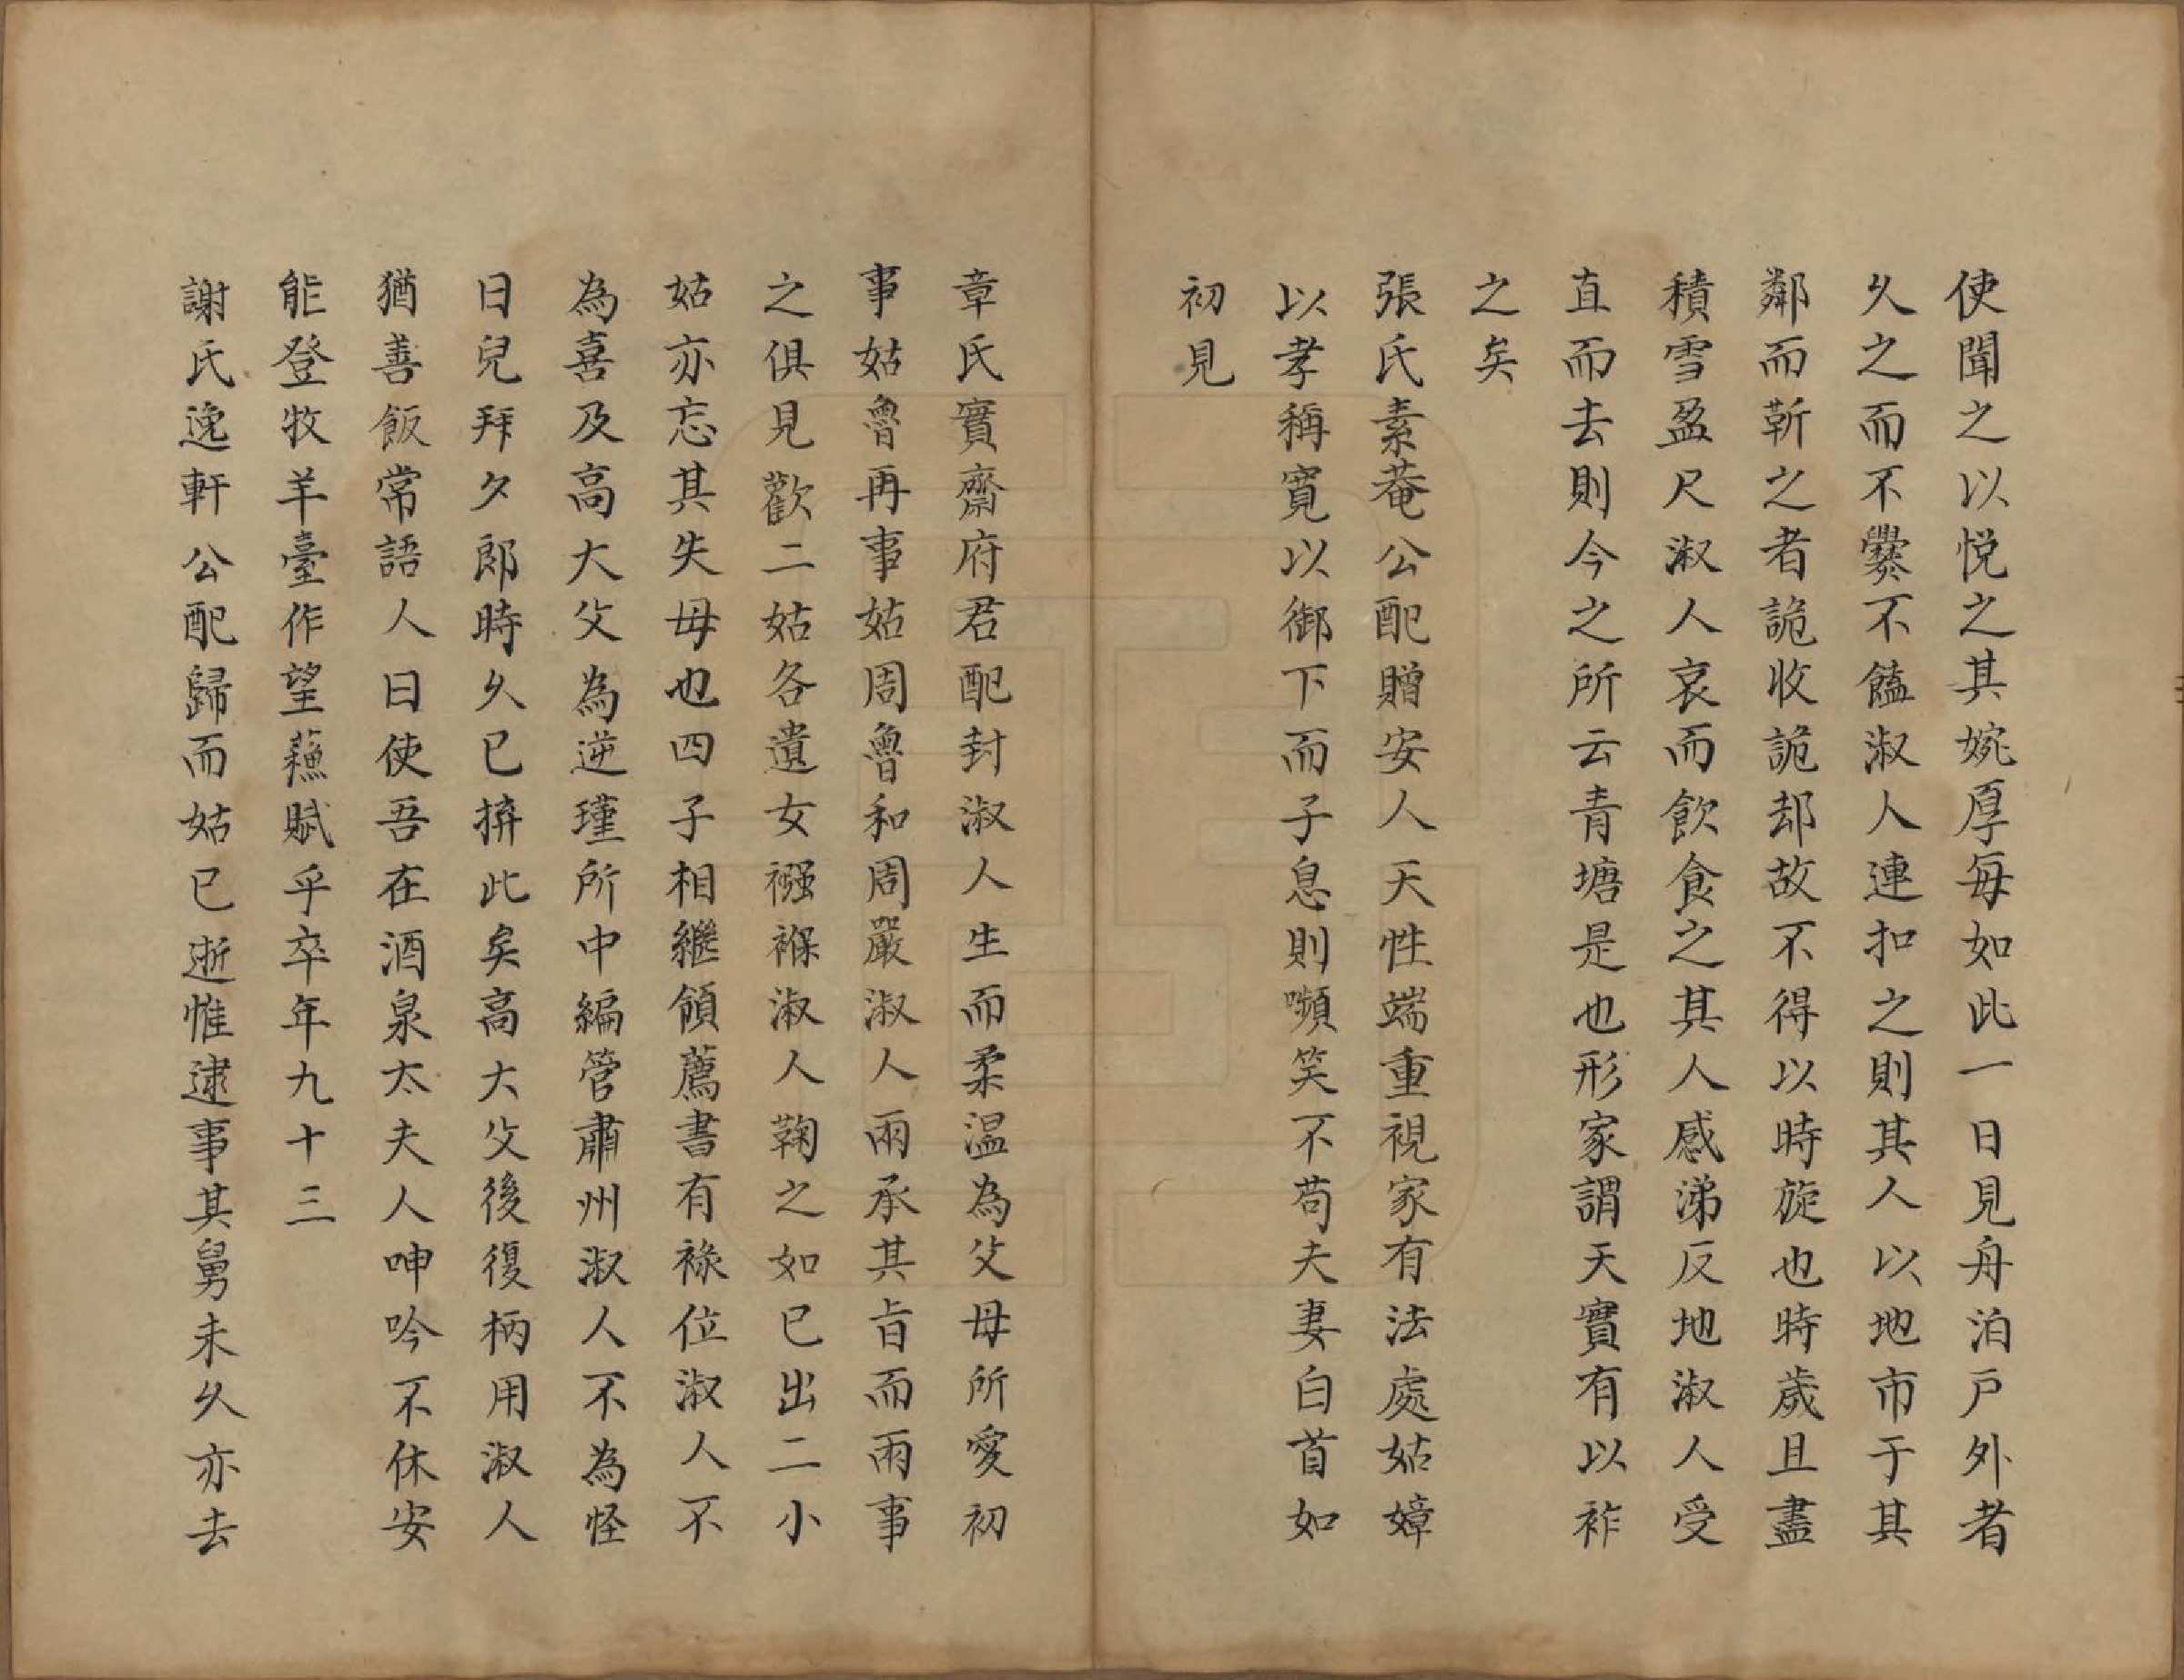 使聞之以悅之其婉厚每如此一日見舟泊戶外者
久之而不爨不饁淑人連扣之則其人以地市于其
鄰而靳之者詭收詭却故不得以時旋也時歲且盡
積雪盈尺淑人哀而飲食之其人感涕反地淑人受
直而去則今之所云青塘是也形家謂天實有以祚
之矣
張氏素菴公配贈安人天性端重視家有法處姑嫜
以孝稱寬以御下而子息則嚬笑不苟夫妻白首如
初見
章氏實齋府君配封淑人生而柔溫為父母所愛初
事姑魯再事姑周魯和周嚴淑人兩承其旨而兩事
之俱見歡二姑各遺女襁褓淑人鞠之如已出二小
姑亦忘其失母也四子相繼領薦書有祿位淑人不
為喜及高大父為逆瑾所中編管肅州淑人不為怪
曰兒拜夕郎時久已拚此矣高大父後復柄用淑人
猶善飯常語人曰使吾在酒泉太夫人呻吟不休安
能登牧羊臺作望蘓賦乎卒年九十三
謝氏逸軒公配歸而姑已逝惟逮事其舅未久亦去